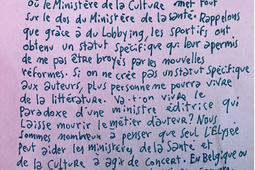 où le Ministère de la Culture met tout
sur le dos du Ministère de la santé. Rappelons
que grâce à du Lobbying, les sportifs ont
obtenu un statut spécifique qui leur a permis
de ne pas être broyés par les nouvelles
réformes. Si on ne crée pas un statut spécifique
aux auteurs, plus personne ne pourra vivre
de la littérature. Va-t-on vivre le
Paradoxe d'une ministre éditrice qui
Laisse mourir le métier d'auteur? Nous
sommes nombreux à penser que seul L'Elysée
peut aider les ministères de la Santé et
de la Culture à agir de concert. En Belgique ou